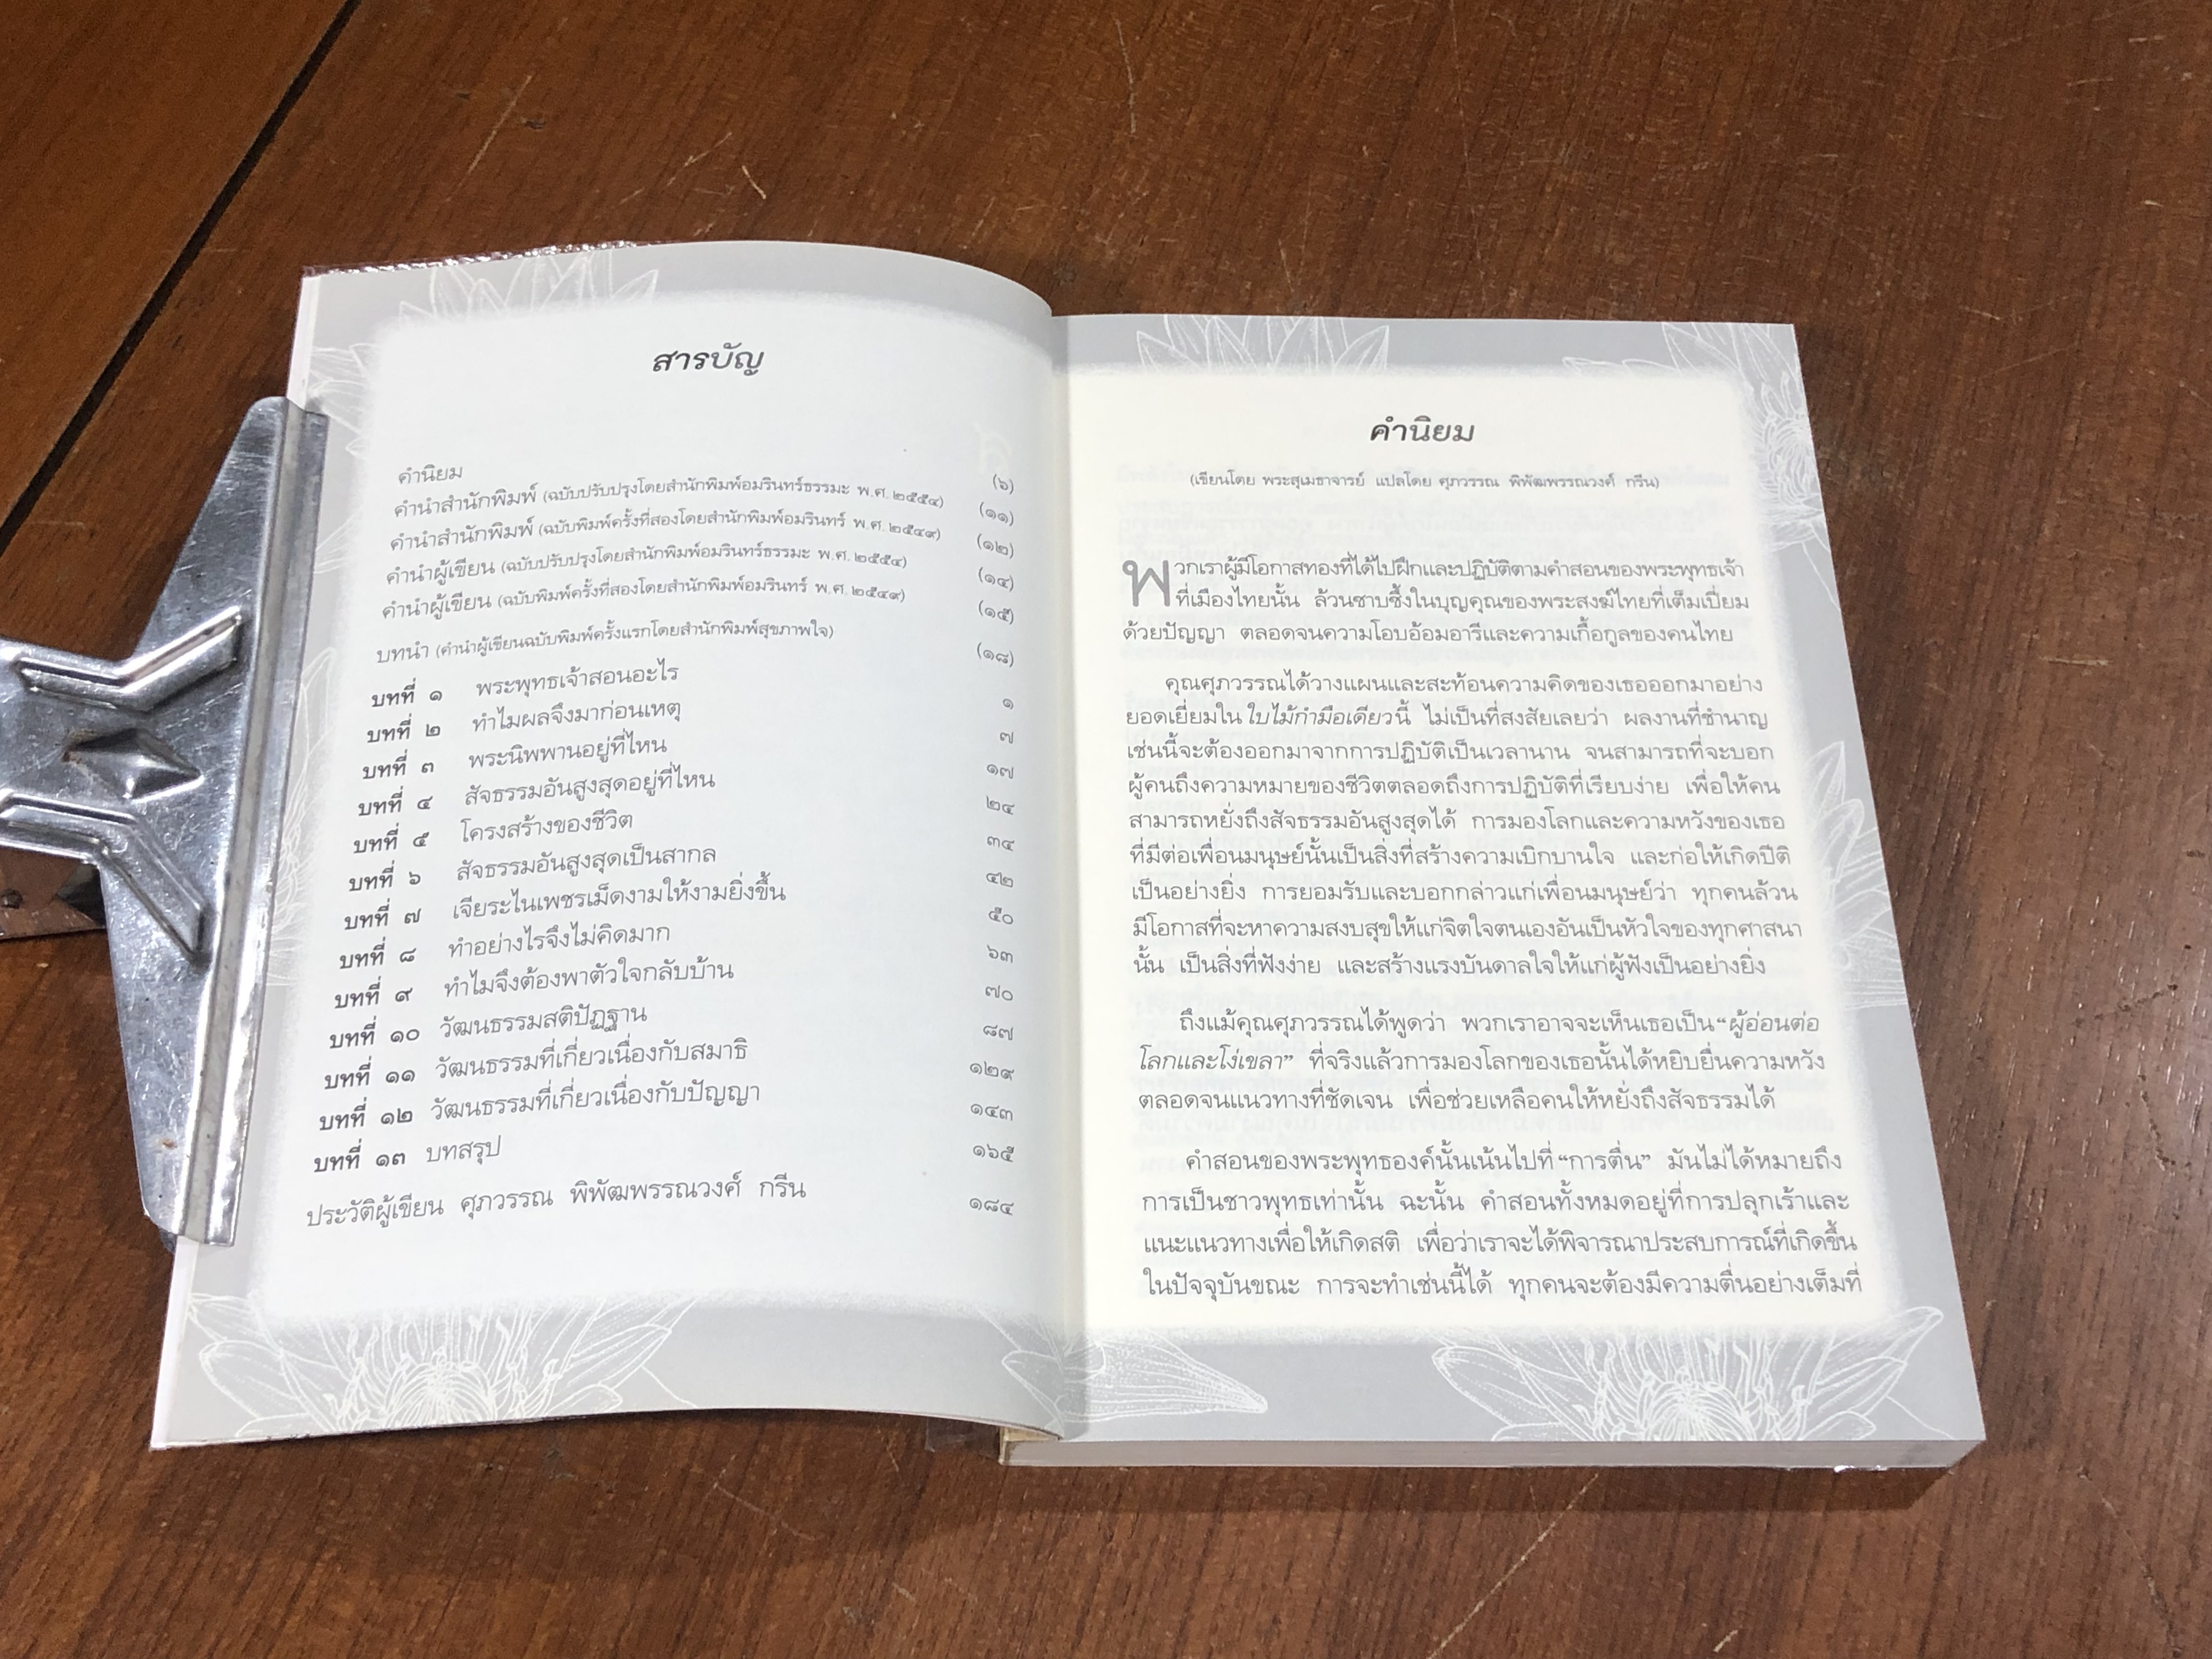 สารบัญ
คำนิยม (๖)
คำนำสำนักพิมพ์ (ฉบับปรับปรุงโดยสำนักพิมพ์อมรินทร์ธรรมะ พ.ศ. ๒๕๕๔) (๑๑)
คำนำสำนักพิมพ์ (ฉบับพิมพ์ครั้งที่สองโดยสำนักพิมพ์อมรินทร์ พ.ศ. ๒๕๔๙) (๑๒)
คำนำผู้เขียน (ฉบับปรับปรุงโดยสำนักพิมพ์อมรินทร์ธรรมะ พ.ศ. ๒๕๕๔) (๑๔)
คำนำผู้เขียน (ฉบับพิมพ์ครั้งที่สองโดยสำนักพิมพ์อมรินทร์ พ.ศ. ๒๕๔๙) (๑๕)
บทนำ (คำนำผู้เขียนฉบับพิมพ์ครั้งแรกโดยสำนักพิมพ์สุขภาพใจ) (๑๘)
บทที่ ๑ พระพุทธเจ้าสอนอะไร ๑
บทที่ ๒ ทำไมผลจึงมาก่อนเหตุ ๗
บทที่ ๓ พระนิพพานอยู่ที่ไหน ๑๗
บทที่ ๔ สัจธรรมอันสูงสุดอยู่ที่ไหน ๒๔
บทที่ ๕ โครงสร้างของชีวิต ๓๔
บทที่ ๖ สัจธรรมอันสูงสุดเป็นสากล ๔๒
บทที่ ๗ เจียระไนเพชรเม็ดงามให้งามยิ่งขึ้น ๕๐
บทที่ ๘ ทำอย่างไรจึงไม่คิดมาก ๖๓
บทที่ ๙ ทำไมจึงต้องพาตัวใจกลับบ้าน ๗๐
บทที่ ๑๐ วัฒนธรรมสติปัฏฐาน ๘๗
บทที่ ๑๑ วัฒนธรรมที่เกี่ยวเนื่องกับสมาธิ ๑๒๙
บทที่ ๑๒ วัฒนธรรมที่เกี่ยวเนื่องกับปัญญา ๑๔๓
บทที่ ๑๓ บทสรุป ๑๖๕
ประวัติผู้เขียน ศุภวรรณ พิพัฒพรรณวงศ์ กรีน ๑๘๔
คำนิยม
(เขียนโดย พระสุเมธาจารย์ แปลโดย ศุภวรรณ พิพัฒพรรณวงศ์ กรีน)
พวกเราผู้มีโอกาสทองที่ได้ไปฝึกและปฏิบัติตามคำสอนของพระพุทธเจ้า
ที่เมืองไทยนั้น ล้วนซาบซึ้งในบุญคุณของพระสงฆ์ไทยที่เต็มเปี่ยม
ด้วยปัญญา ตลอดจนความโอบอ้อมอารีและความเกื้อกูลของคนไทย
คุณศุภวรรณได้วางแผนและสะท้อนความคิดของเธอออกมาอย่าง
ยอดเยี่ยมใน ใบไม้กำมือเดียวนี้ ไม่เป็นที่สงสัยเลยว่า ผลงานที่ชำนาญ
เช่นนี้จะต้องออกมาจากการปฏิบัติเป็นเวลานาน จนสามารถที่จะบอก
ผู้คนถึงความหมายของชีวิตตลอดถึงการปฏิบัติที่เรียบง่าย เพื่อให้คน
สามารถหยั่งถึงสัจธรรมอันสูงสุดได้ การมองโลกและความหวังของเธอ
ที่มีต่อเพื่อนมนุษย์นั้นเป็นสิ่งที่สร้างความเบิกบานใจ และก่อให้เกิดปีติ
เป็นอย่างยิ่ง การยอมรับและบอกกล่าวแก่เพื่อนมนุษย์ว่า ทุกคนล้วน
มีโอกาสที่จะหาความสงบสุขให้แก่จิตใจตนเองอันเป็นหัวใจของทุกศาสนา
นั้น เป็นสิ่งที่ฟังง่าย และสร้างแรงบันดาลใจให้แก่ผู้ฟังเป็นอย่างยิ่ง
ถึงแม้คุณศุภวรรณได้พูดว่า พวกเราอาจจะเห็นเธอเป็น “ผู้อ่อนต่อ
โลกและโง่เขลา” ที่จริงแล้วการมองโลกของเธอนั้นได้หยิบยื่นความหวัง
ตลอดจนแนวทางที่ชัดเจน เพื่อช่วยเหลือคนให้หยั่งถึงสัจธรรมได้
คำสอนของพระพุทธองค์นั้นเน้นไปที่ “การตื่น” มันไม่ได้หมายถึง
การเป็นชาวพุทธเท่านั้น ฉะนั้น คำสอนทั้งหมดอยู่ที่การปลุกเร้าและ
แนะแนวทางเพื่อให้เกิดสติ เพื่อว่าเราจะได้พิจารณาประสบการณ์ที่เกิดขึ้น
ในปัจจุบันขณะ การจะทำเช่นนี้ได้ ทุกคนจะต้องมีความตื่นอย่างเต็มที่